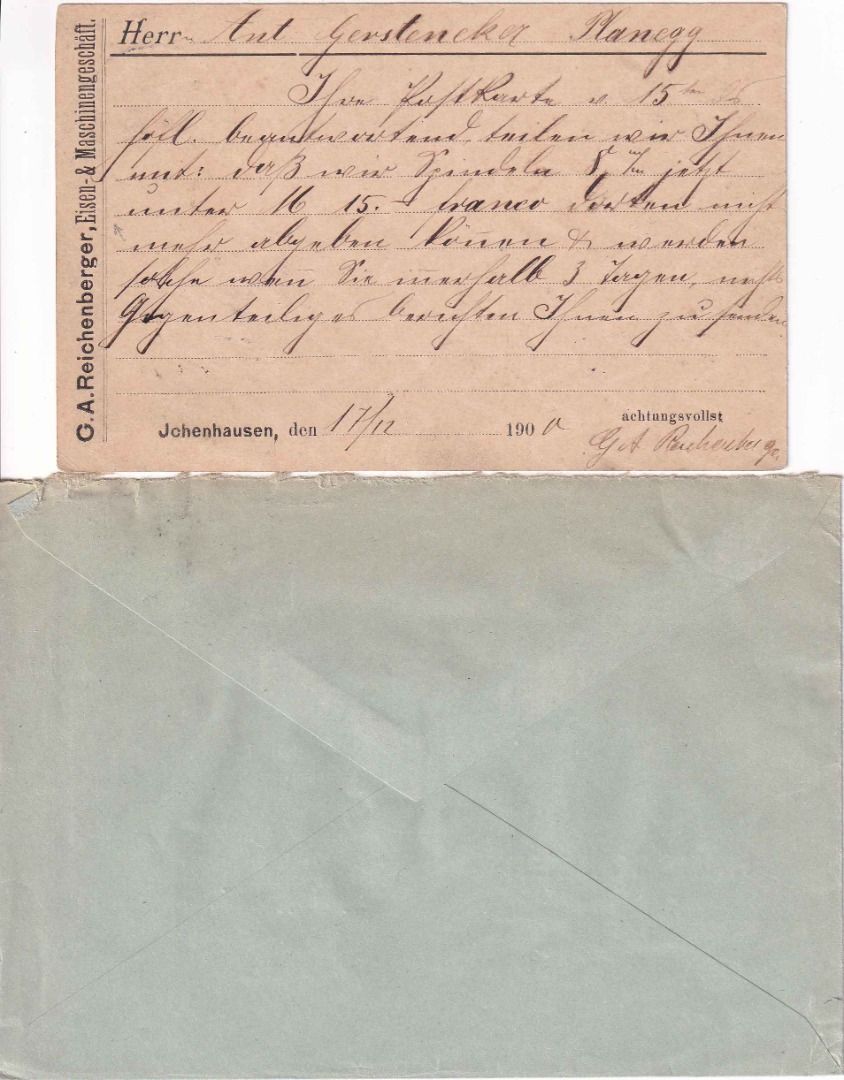 G. A. Reichenberger, Eisen- & Maschinengeschäft.
Herrn Ant Gerstenecker Planegg
Ihre Postkarte v. 15ten ds
höfl. beantwortend, teilen wir Ihnen
mit: daß wir Spindeln 8 jetzt
unter M 15.- franco dorten nicht
mehr abgeben können & werden
solche wenn Sie innerhalb 3 Tagen, nichts
Gegenteiliges berichten Ihnen zu senden.
Jchenhausen, den 17/12 1900
achtungsvollst
G A Reichenberger